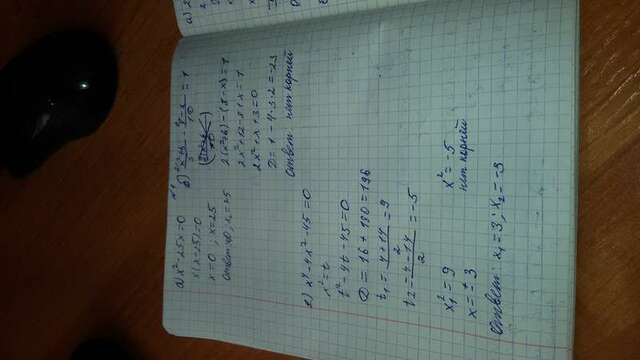 №1
а) x² - 25x = 0
x(x-25) = 0
x = 0 ; x = 25
Ответ: x₁=0, x₂ = 25
б) (x²+6)/5 - (8-x)/10 = 1
2(x²+6) - (8-x) = 1
2x² + 12 - 8 + x = 1
2x² + x + 3 = 0
D = 1 - 4·3·2 = -23
Ответ: нет корней
2) x⁴ - 4x² - 45 = 0
x² = t
t² - 4t - 45 = 0
D = 16 + 180 = 196
t₁ = (4+14)/2 = 9
t₂ = (4-14)/2 = -5
x₁² = 9
x = ± 3
x² = -5
нет корней
Ответ: x₁ = 3 ; x₂ = -3
а) 2